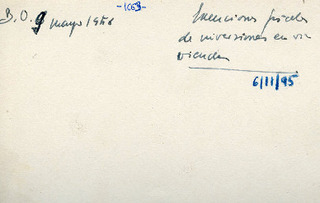 B.O. 9 mayo 1958
-1663-
Exenciones fiscales
de inversiones en vi
viendas
6/11/95